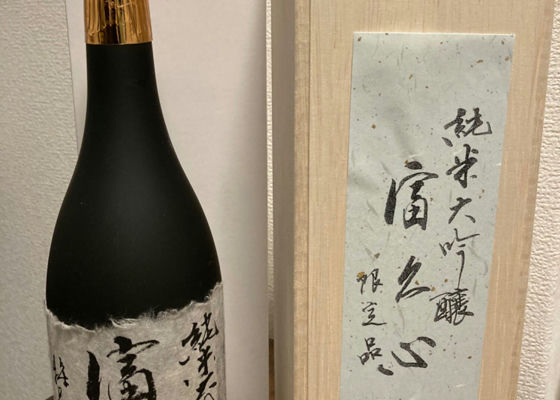 純米大吟醸
富久心
限定品
純米大
富